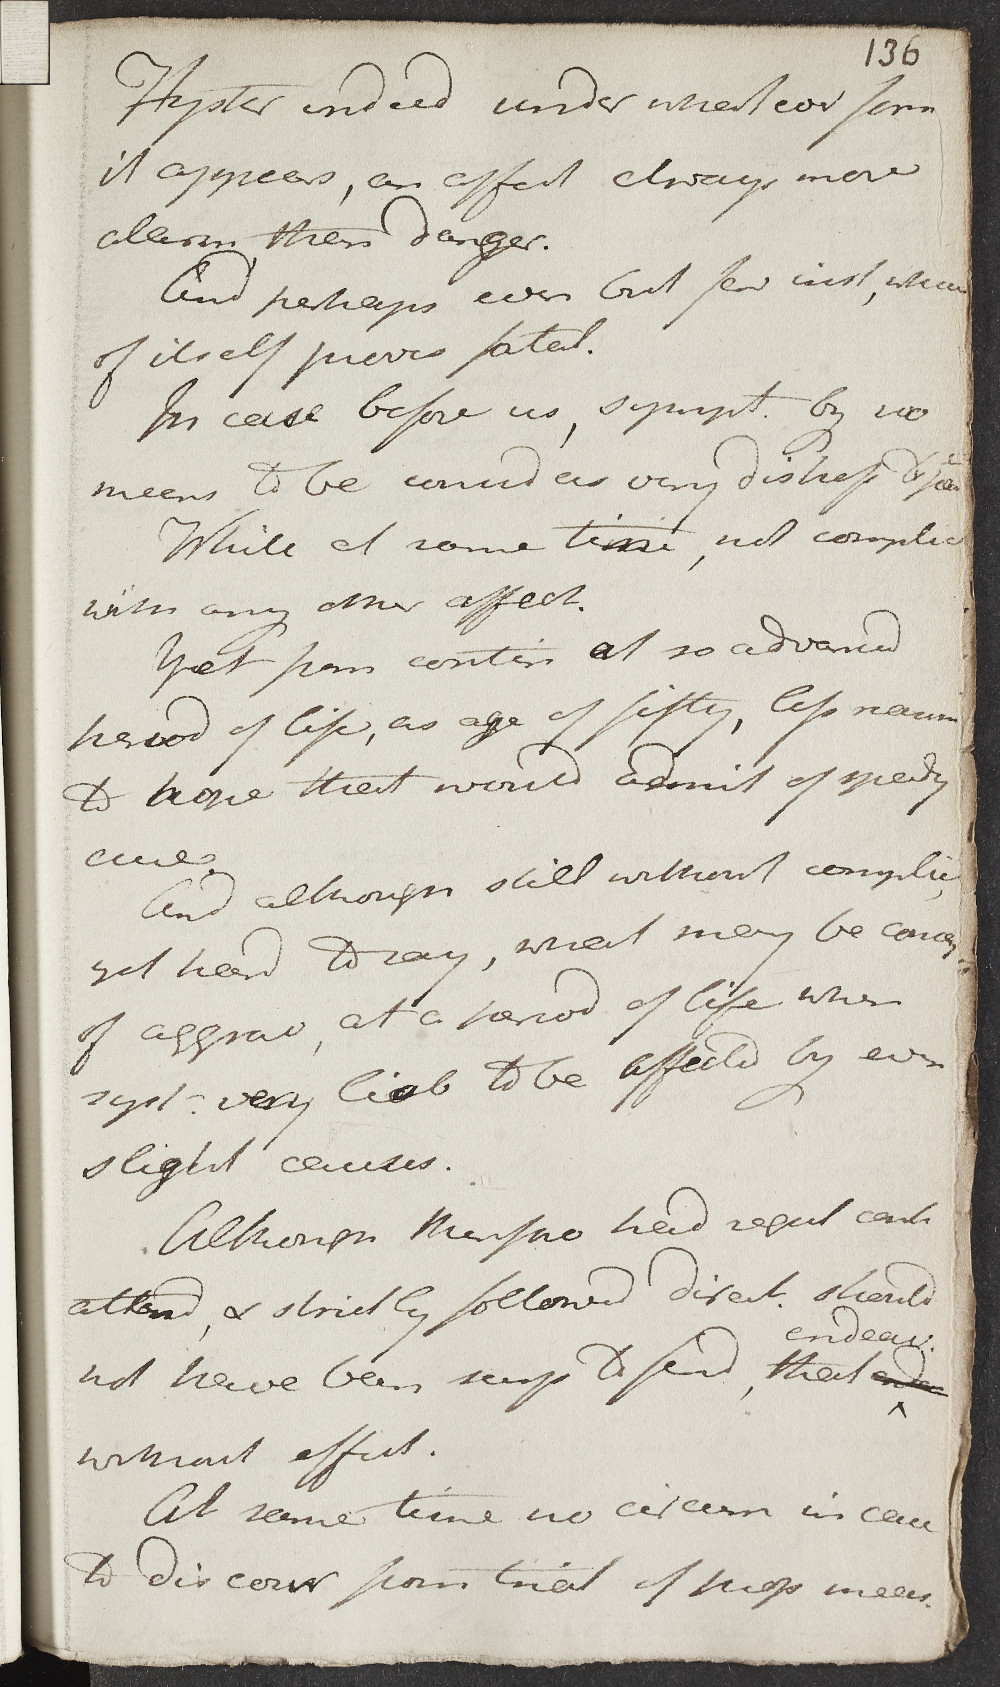 136
Hyster indeed under whatever form
it appears, an affect always more
alarm than danger.
And perhaps even but few inst, where
of itself proves fatal.
In case before us, sympt. by no
means to be consid as very distress &
While at same time, not complic
with any other affect.
Yet from contin at so advanced
period of life, as age of fifty, less reason
to hope that would admit of speedy
cure.
And although still without complic,
yet hard to say, what may be conseq
of aggrav, at a period of life when
syst. very liab to be affected by even
slight causes.
Although therefore had regul cont
attend, & strictly followed direct. should
endeav.
not have been surp to find, that
without effect.
At same time no circum in case
to discour from trial of prop meas.